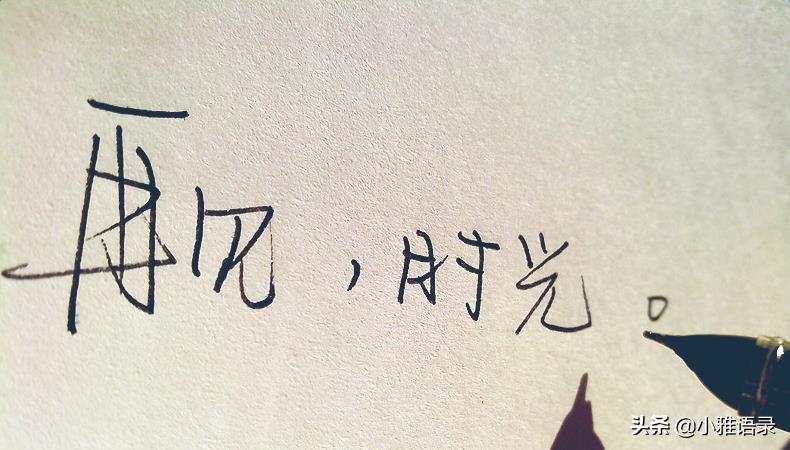 再见，时光。
头条 @小雅语录